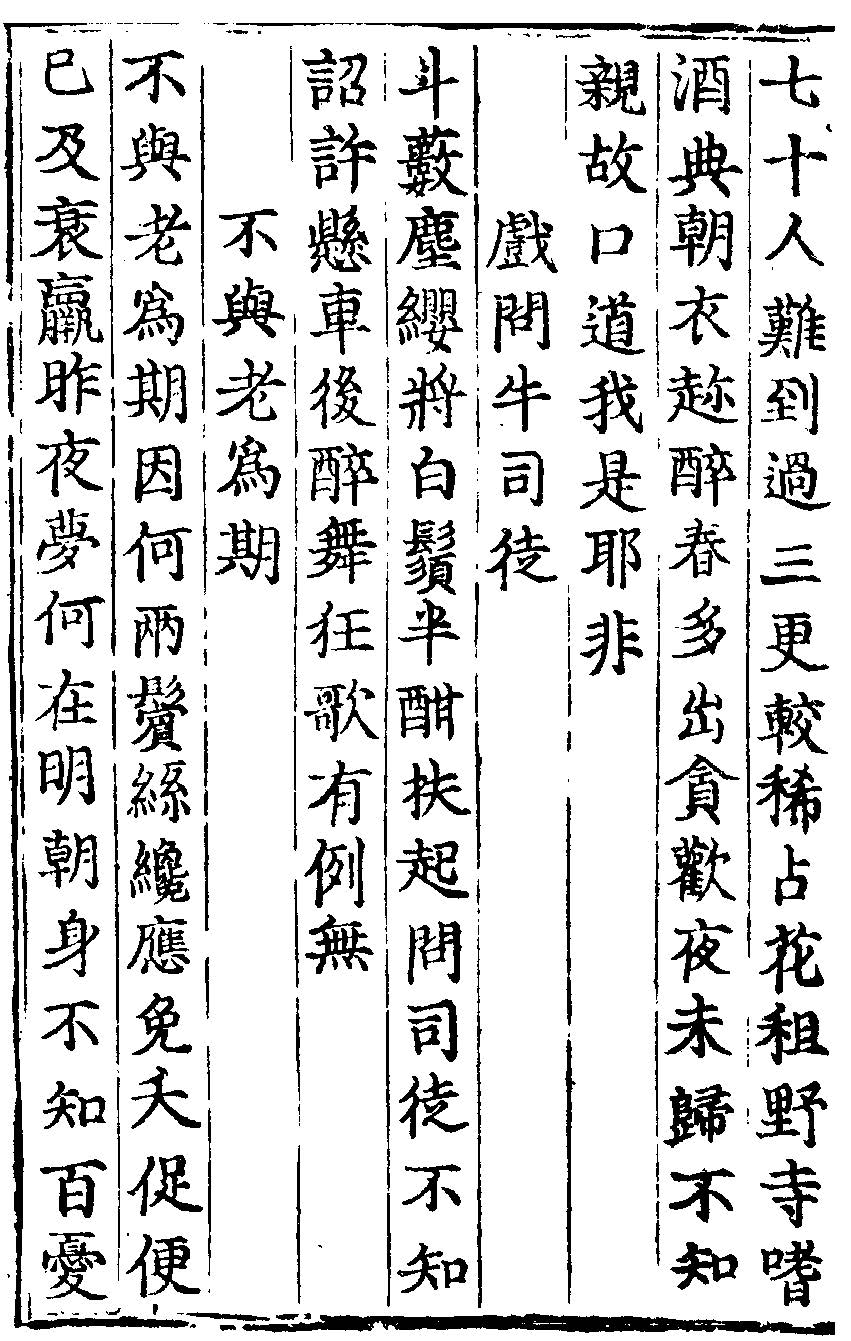 七十人難到過三更較稀占花租野寺嗜
酒典朝衣趂醉春多出貪歡夜未歸不知
親故口道我是耶非
戲問牛司徒
斗藪塵纓捋白鬚半酣扶起問司徒不知
詔許懸車後醉舞狂歌有例無
不與老爲期
不與老爲期因何兩鬢絲纔應免夭促便
已及衰羸昨夜夢何在明朝身不知百憂